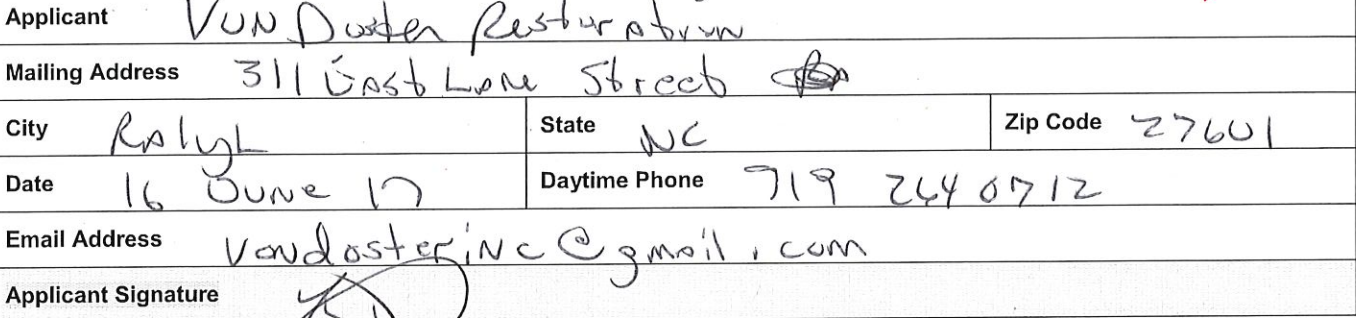 Applicant Von Doster Restoration
Mailing Address 311 East Lane Street
City Raleigh State NC Zip Code 27601
Date 16 June 17 Daytime Phone 919 264 0712
Email Address vondosterinc@gmail.com
Applicant Signature